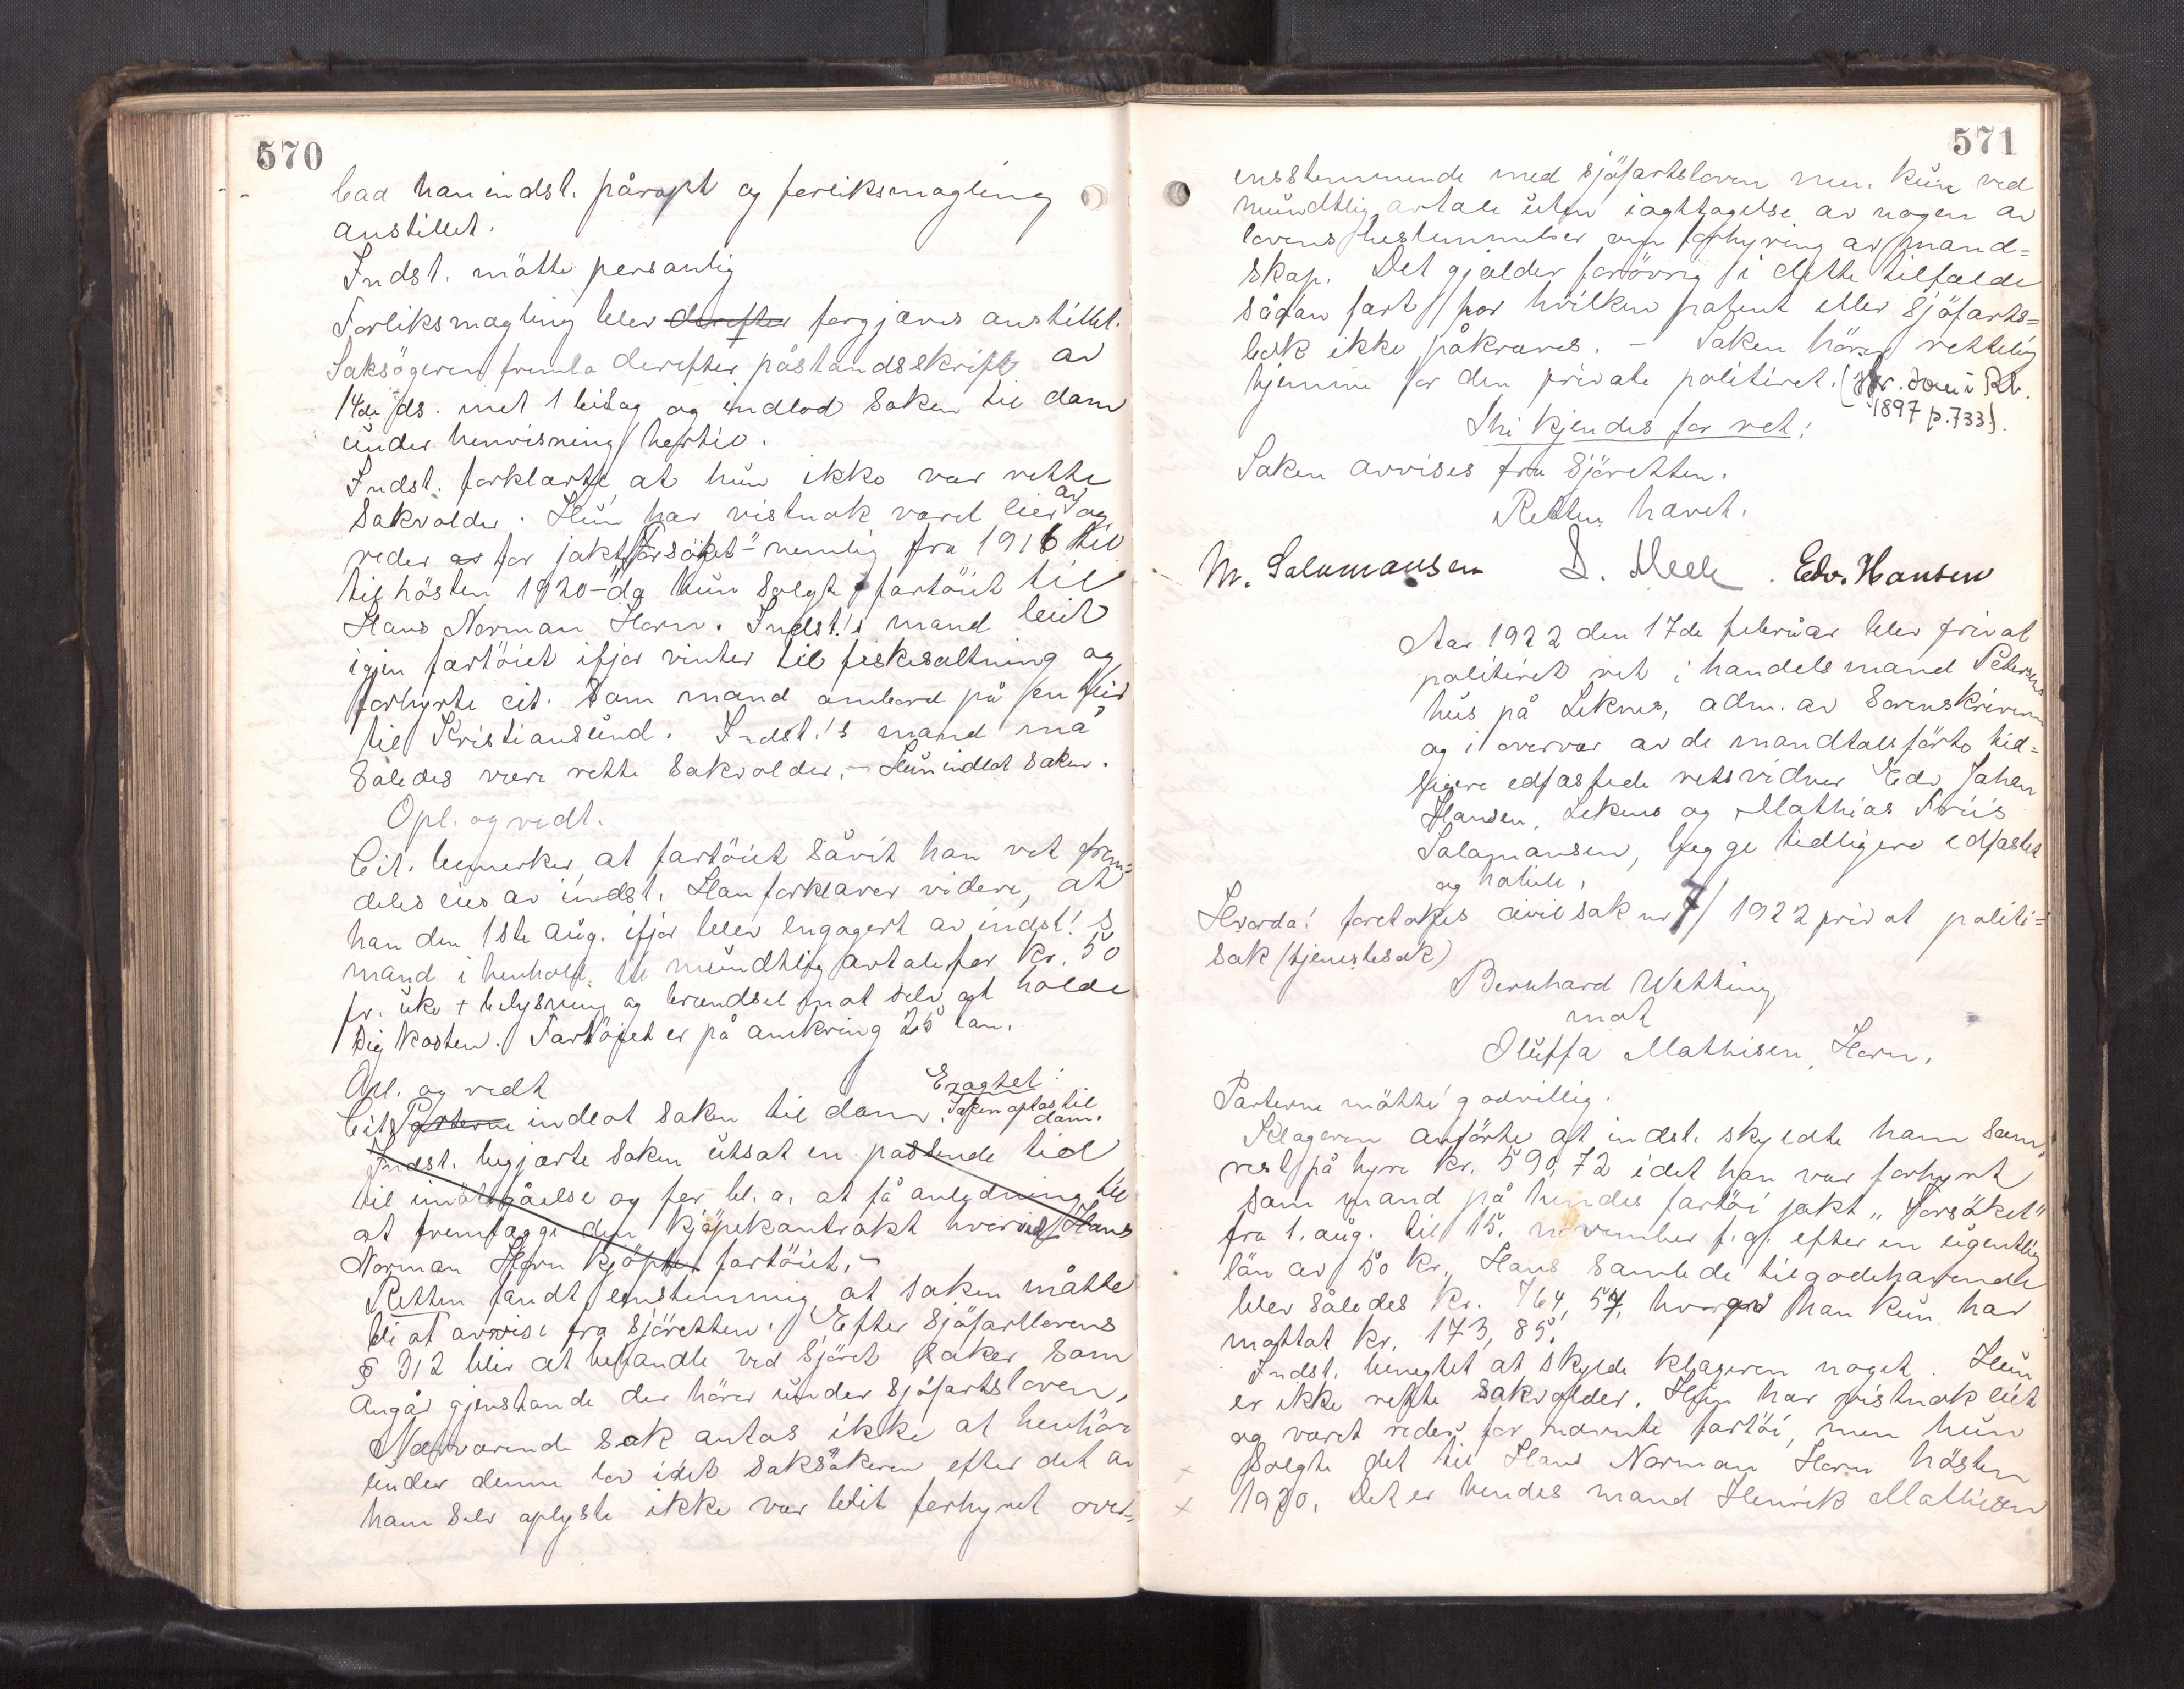 570
bad han indst. påropt og forliksmægling
anstillet.
Indst. mötte personlig
Forliksmægling blev derefter forgjæves anstillet.
Saksögeren fremla derefter påstandsskrift av
14de ds. met 1 bilag og indlod saken til dom
under henvisning hertil.
Indst. forklarte, at hun ikke var rette
sakvolder. Hun har vistnok været eier av og
reder for jakt "Forsöket" nemlig fra 1916 til
til hösten 1920 - da hun solgte fartöiet til
Hans Norman Horn. Indst.'s mand leiet
igjen fartöiet ifjor vinter til fiskesaltning og
forhyrte cit. som mand ombord på en tur
til Kristiansund. Indst.'s mand må
således være rette sakvolder. - Hun indlot saken.
Opl. og vedt.
Cit. bemerker, at fartöiet såvit han vet frem-
deles eies av indst. Han forklarer videre, at
han den 1ste aug. ifjor blev engagert av indst.'s
mand i henhold til mundtlig avtale for kr. 50
pr. uke + belysning og brændsel mot selv at holde
sig kosten. Fartöiet er på omkring 25 ton.
Opl. og vedt
Cit. Parterne indlot saken til dom. Eragtet:
Saken optas til
dom.
Indst. begjærte saken utsat en passende tid
til imötegåelse og for bl. a. at få anledning til
at fremlægge den kjöpekontrakt hvorved Hans
Norman Horn kjöpte fartöiet. -
Retten fandt enstemmig at saken måtte
bli at avvise fra sjöretten. Efter Sjöfartslovens
§ 312 blir at behandle ved sjöret saker som
angår gjenstande der hörer under sjöfartsloven.
Nærværende sak antas ikke at henhöre
under denne lov idet saksökeren efter det av
ham selv oplyste ikke var blit forhyret over-
571
ensstemmende med sjöfartsloven men kun ved
mundtlig avtale uten iagttagelse av nogen av
lovens bestemmelser om forhyring av mand-
skap. Det gjælder forövrig i dette tilfælde
sådan fart for hvilken patent eller sjöfarts-
bok ikke påkræves. - Saken hörer rettelig
hjemme for den private politiret. (Jfr. dom i Rt.
1897 p. 733).
Thi kjendes for ret:
Saken avvises fra Sjöretten.
Retten hævet.
M. Salomonsen Edv. Hansen
Aar 1922 den 17de februar blev privat
politiret ret i handelsmand Petersens
hus på Leknes, adm. av Sorenskriveren
og i overvær av de mandtalsförte tid-
ligere edfæstede retsvidner Edv. Johan
Hansen, Leknes og Mathias Friis
Salomonsen, begge tidligere edfæstet
og habile.
Hvorda! foretokes civil sak nr 7/1922 privat politi-
sak (tjenestesak)
Bernhard Wetting
mot
Oluffa Mathisen, Horn.
Parterne mötte godvillig.
Klageren anförte at indst. skyldte ham som
rest på hyre kr. 590,72 idet han var forhyret
som mand på hendes fartöi jakt "Forsöket"
fra 1. aug. til 15. november f. å. efter en ugentlig
lön av 50 kr. Hans samlede tilgodehavende
blev således kr. 764,57, hvorav han kun har
mottat kr. 173,85.
Indst. benegtet at skylde klageren noget. Hun
er ikke rette sakvolder. Hun har vistnok eiet
og været reder for nævnte fartöi, men hun
x solgte det til Hans Norman Horn hösten
x 1920. Det er hendes mand Henrik Mathisen